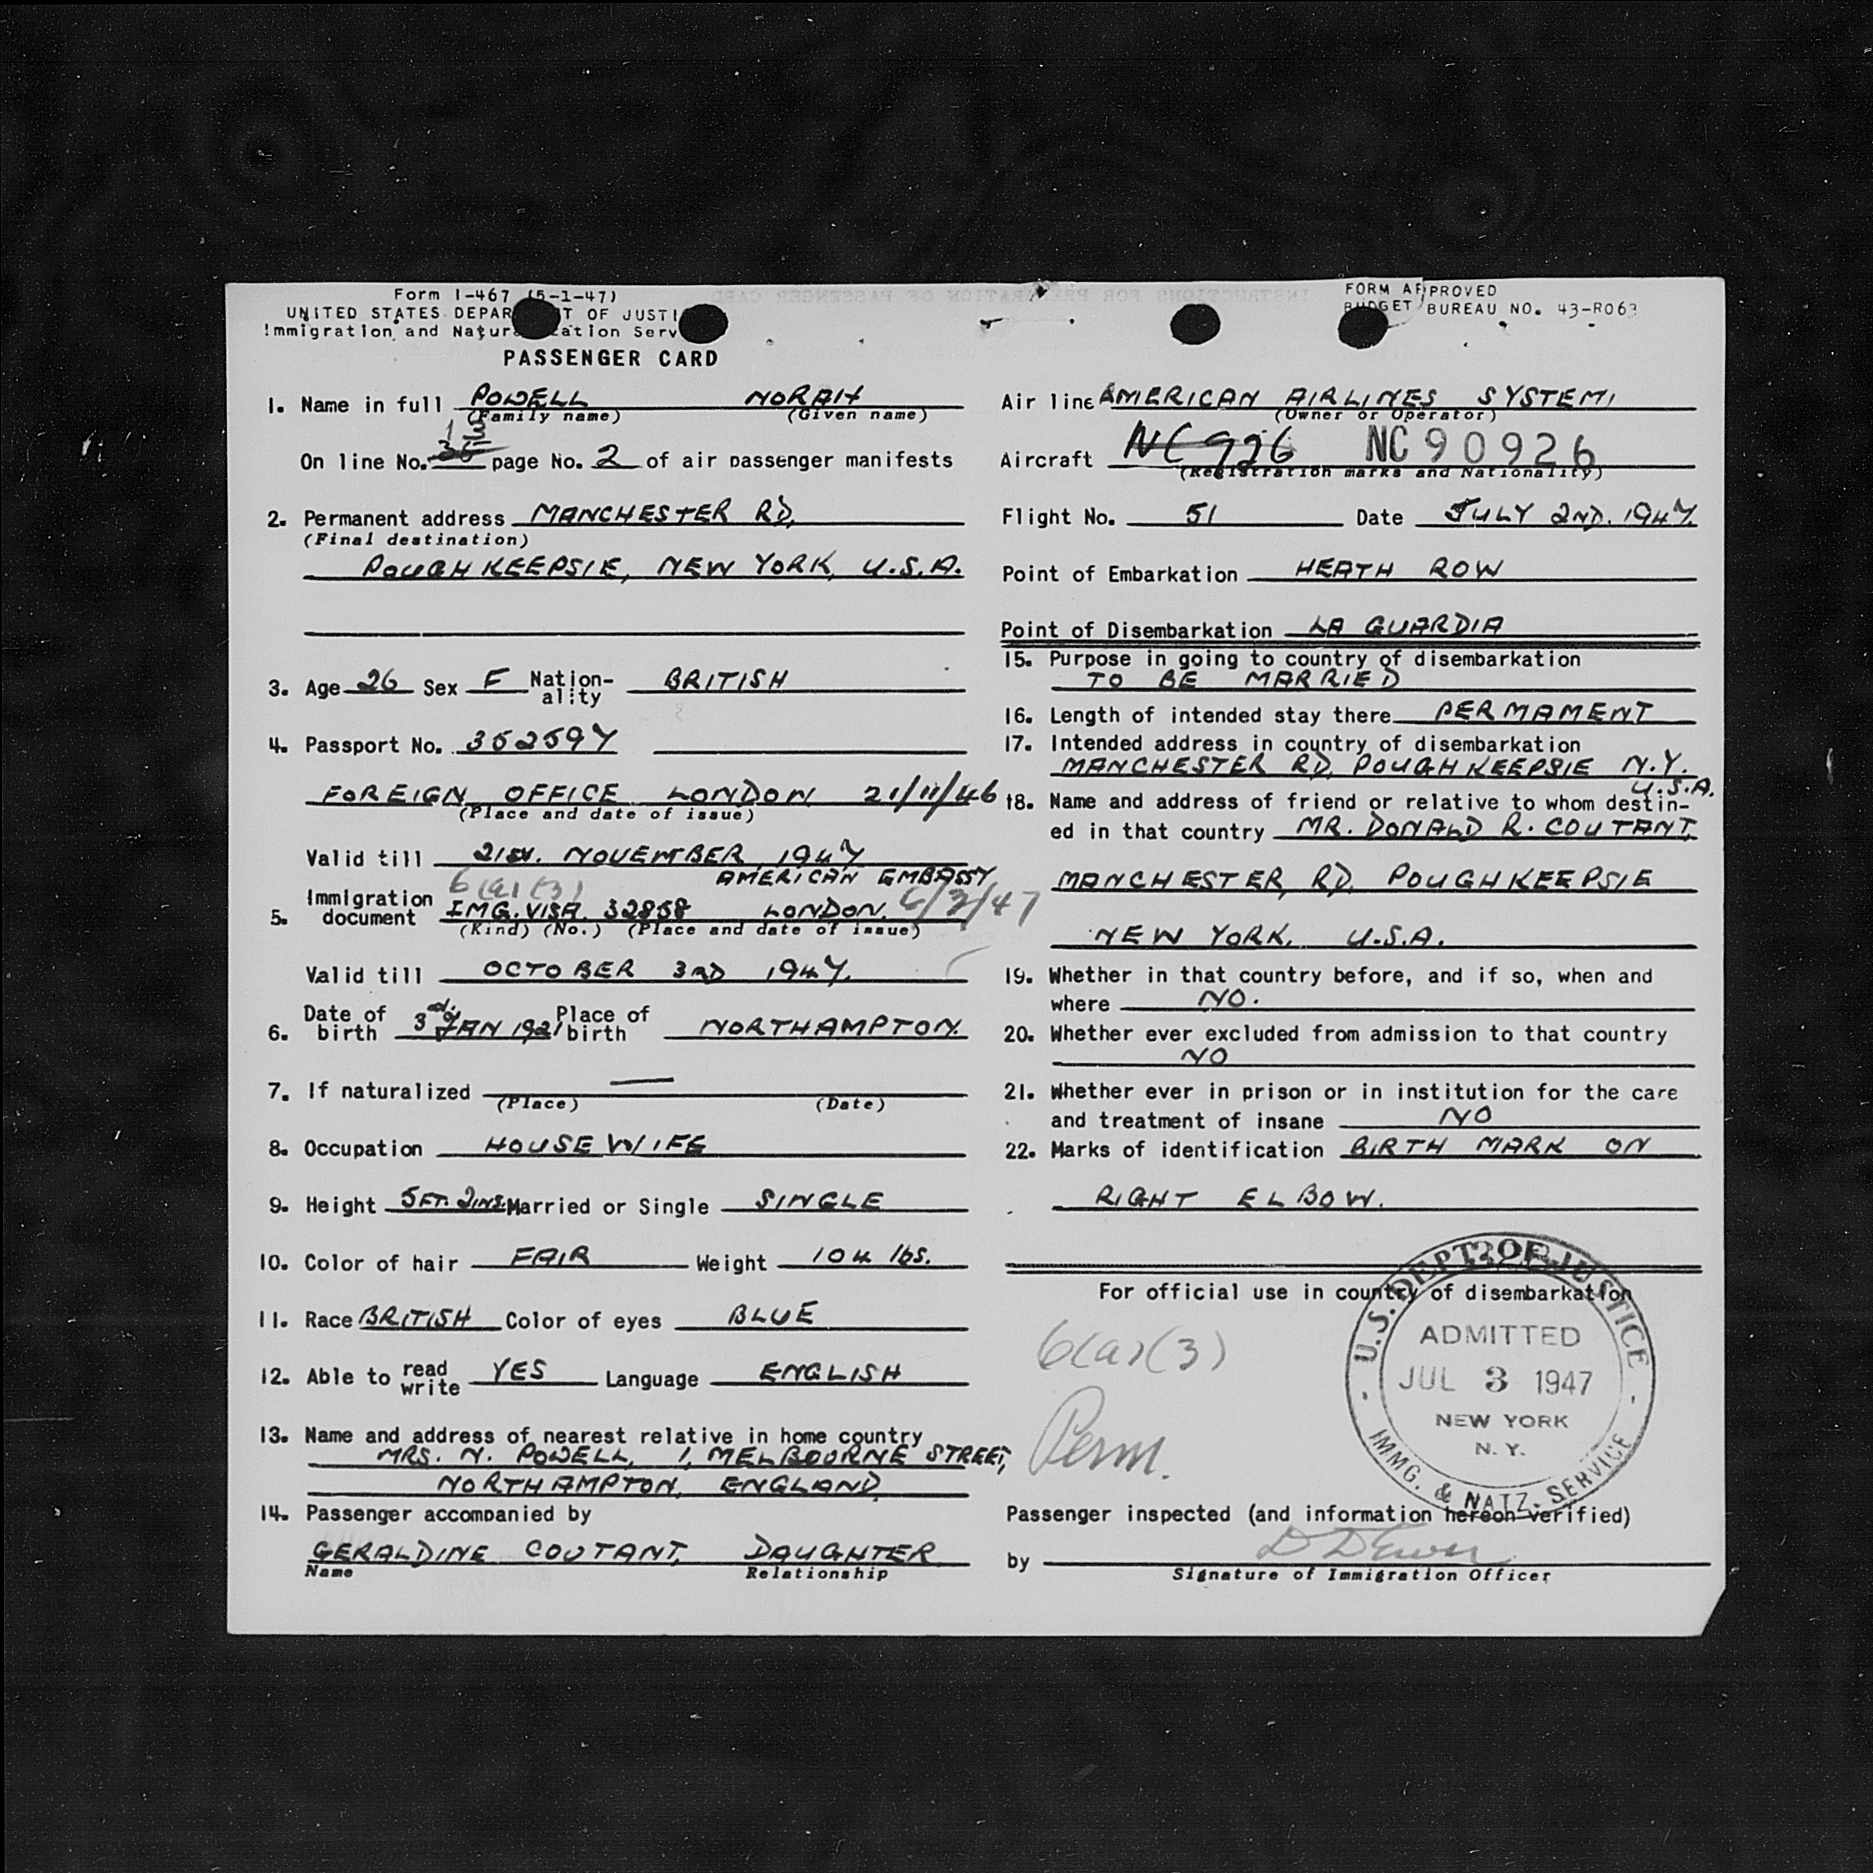 Form I-467 (5-1-47)
UNITED STATES DEPAR T OF JUSTI
Immigration and Natur ation Serv
PASSENGER CARD
FORM APPROVED
BUDGET BUREAU NO. 43-R063
1. Name in full POWELL NORAH
(Family name) (Given name)
On line No. page No. 2 of air passenger manifests
2. Permanent address MANCHESTER RD,
(Final destination)
POUGHKEEPSIE, NEW YORK, U.S.A.
3. Age 26 Sex F Nation-ality BRITISH
4. Passport No. 352597
FOREIGN OFFICE LONDON 21/11/46
(Place and date of issue)
Valid till 21st. NOVEMBER 1947
AMERICAN EMBASSY
6(a)(3)
5. Immigration document IMG. VISA. 32858 LONDON. 6/3/47
(Kind) (No.) (Place and date of issue)
Valid till OCTOBER 3RD 1947.
6. Date of birth 3rd JAN 1921 Place of birth NORTHAMPTON.
7. If naturalized —
(Place) (Date)
8. Occupation HOUSEWIFE
9. Height 5FT. 2INS. Married or Single SINGLE
10. Color of hair FAIR Weight 104 lbs.
11. Race BRITISH Color of eyes BLUE
12. Able to read write YES Language ENGLISH
13. Name and address of nearest relative in home country
MRS. N. POWELL, 1, MELBOURNE STREET,
NORTHAMPTON, ENGLAND.
14. Passenger accompanied by
GERALDINE COUTANT, DAUGHTER
Name Relationship
Air line AMERICAN AIRLINES SYSTEM,
(Owner or Operator)
Aircraft NC 926 NC90926
(Registration marks and Nationality)
Flight No. 51 Date JULY 2ND. 1947.
Point of Embarkation HEATH ROW
Point of Disembarkation LA GUARDIA
15. Purpose in going to country of disembarkation
TO BE MARRIED
16. Length of intended stay there PERMAMENT
17. Intended address in country of disembarkation
MANCHESTER RD, POUGHKEEPSIE N.Y.
U.S.A.
18. Name and address of friend or relative to whom destin-
ed in that country MR. DONALD R. COUTANT,
MANCHESTER, RD, POUGHKEEPSIE
NEW YORK, U.S.A.
19. Whether in that country before, and if so, when and
where NO.
20. Whether ever excluded from admission to that country
NO
21. Whether ever in prison or in institution for the care
and treatment of insane NO
22. Marks of identification BIRTH MARK ON
RIGHT ELBOW.
For official use in country of disembarkation
6(a)(3)
Perm.
U.S. DEPT. OF JUSTICE
ADMITTED
JUL 3 1947
NEW YORK
N. Y.
IMMG. & NATZ. SERVICE
Passenger inspected (and information hereon verified)
by
Signature of Immigration Officer